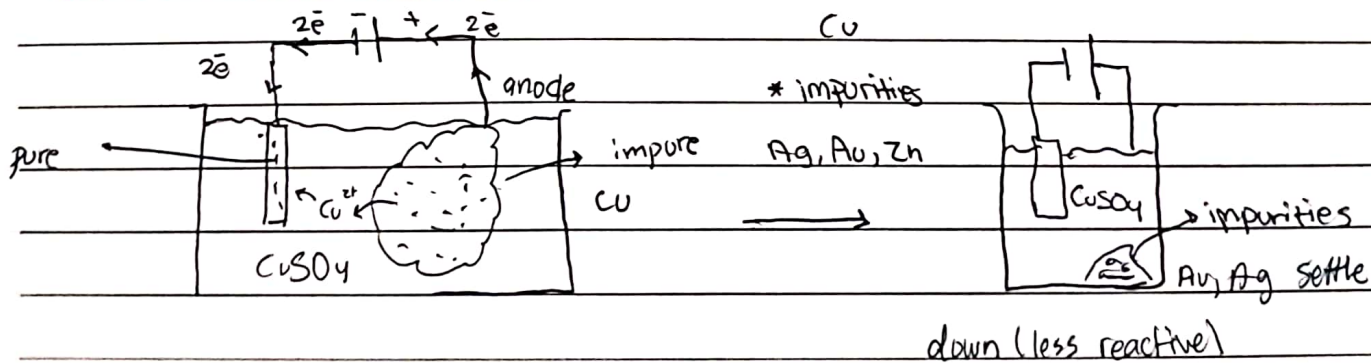 2ē - + 2ē Cu
2ē anode * impurities
pure impure Ag, Au, Zn
Cu²⁺ Cu CuSO4 impurities
CuSO4 Au, Ag settle
down (less reactive)